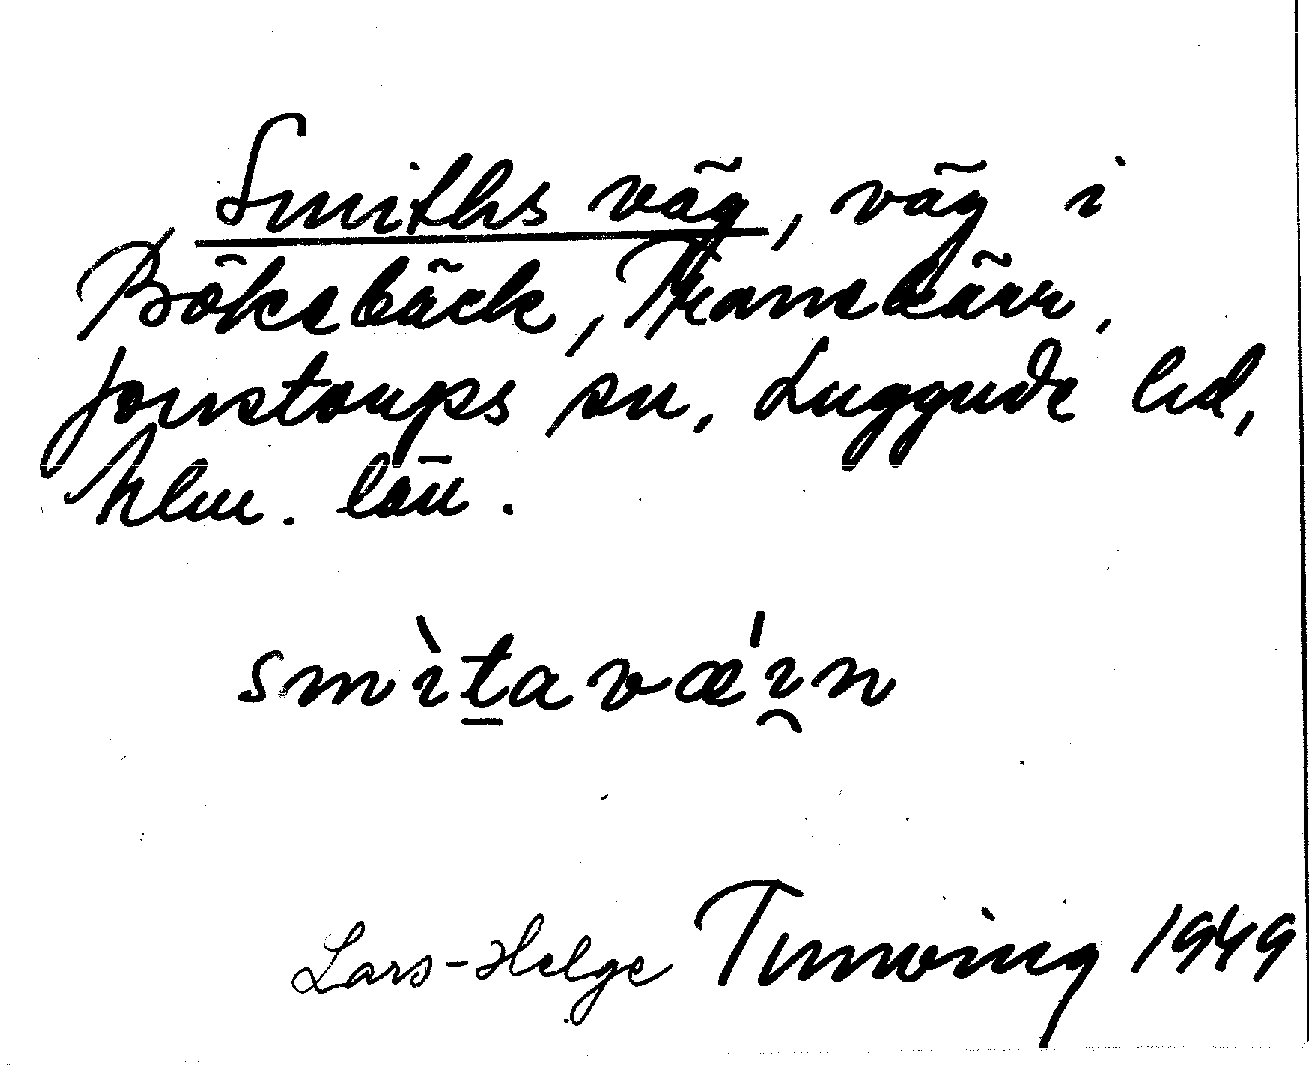 Smiths väg, väg i
Bökebäck, Tranekärr,
Jonstorps sn, Luggude hd,
Mlm. län.
smìt̠avǽi̯n
Lars-Helge Tunving 1949